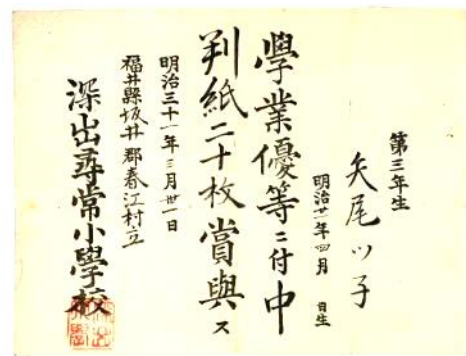 第三年生
矢尾ツ子
明治廿一年四月 日生
學業優等ニ付中
判紙二十枚賞與ス
明治三十一年三月卅一日
福井縣坂井郡春江村立
深出尋常小學校